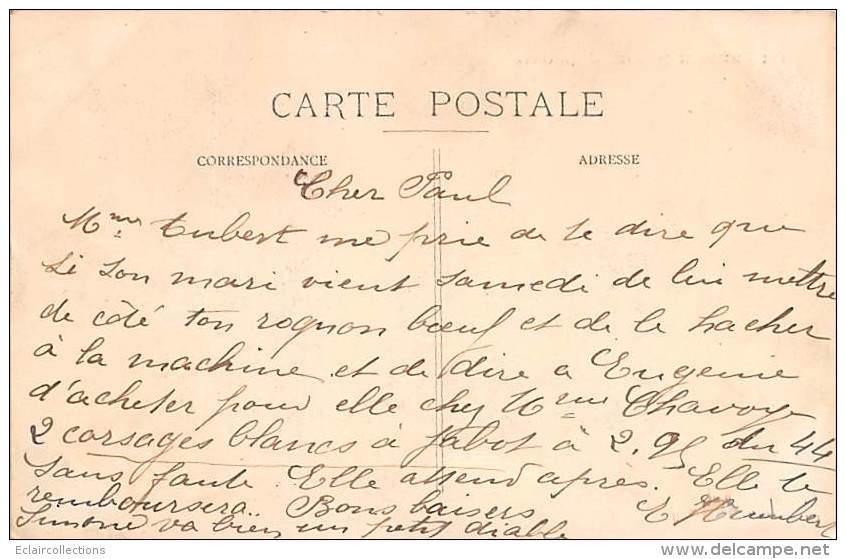 CARTE POSTALE
CORRESPONDANCE
ADRESSE
Cher Paul
Mme Aubert me prie de te dire que
si son mari vient samedi de lui mettre
de côté ton rognon bœuf et de le hacher
à la machine et de dire a Eugenie
d'acheter pour elle chez Mme Chavoye
2 corsages blancs à jabot à 2,95 du 44
sans faute. Elle attend après. Elle te
remboursera.. Bons baisers
E Humbert
Simone va bien un petit diable
Eclaircollections
www.delcampe.net